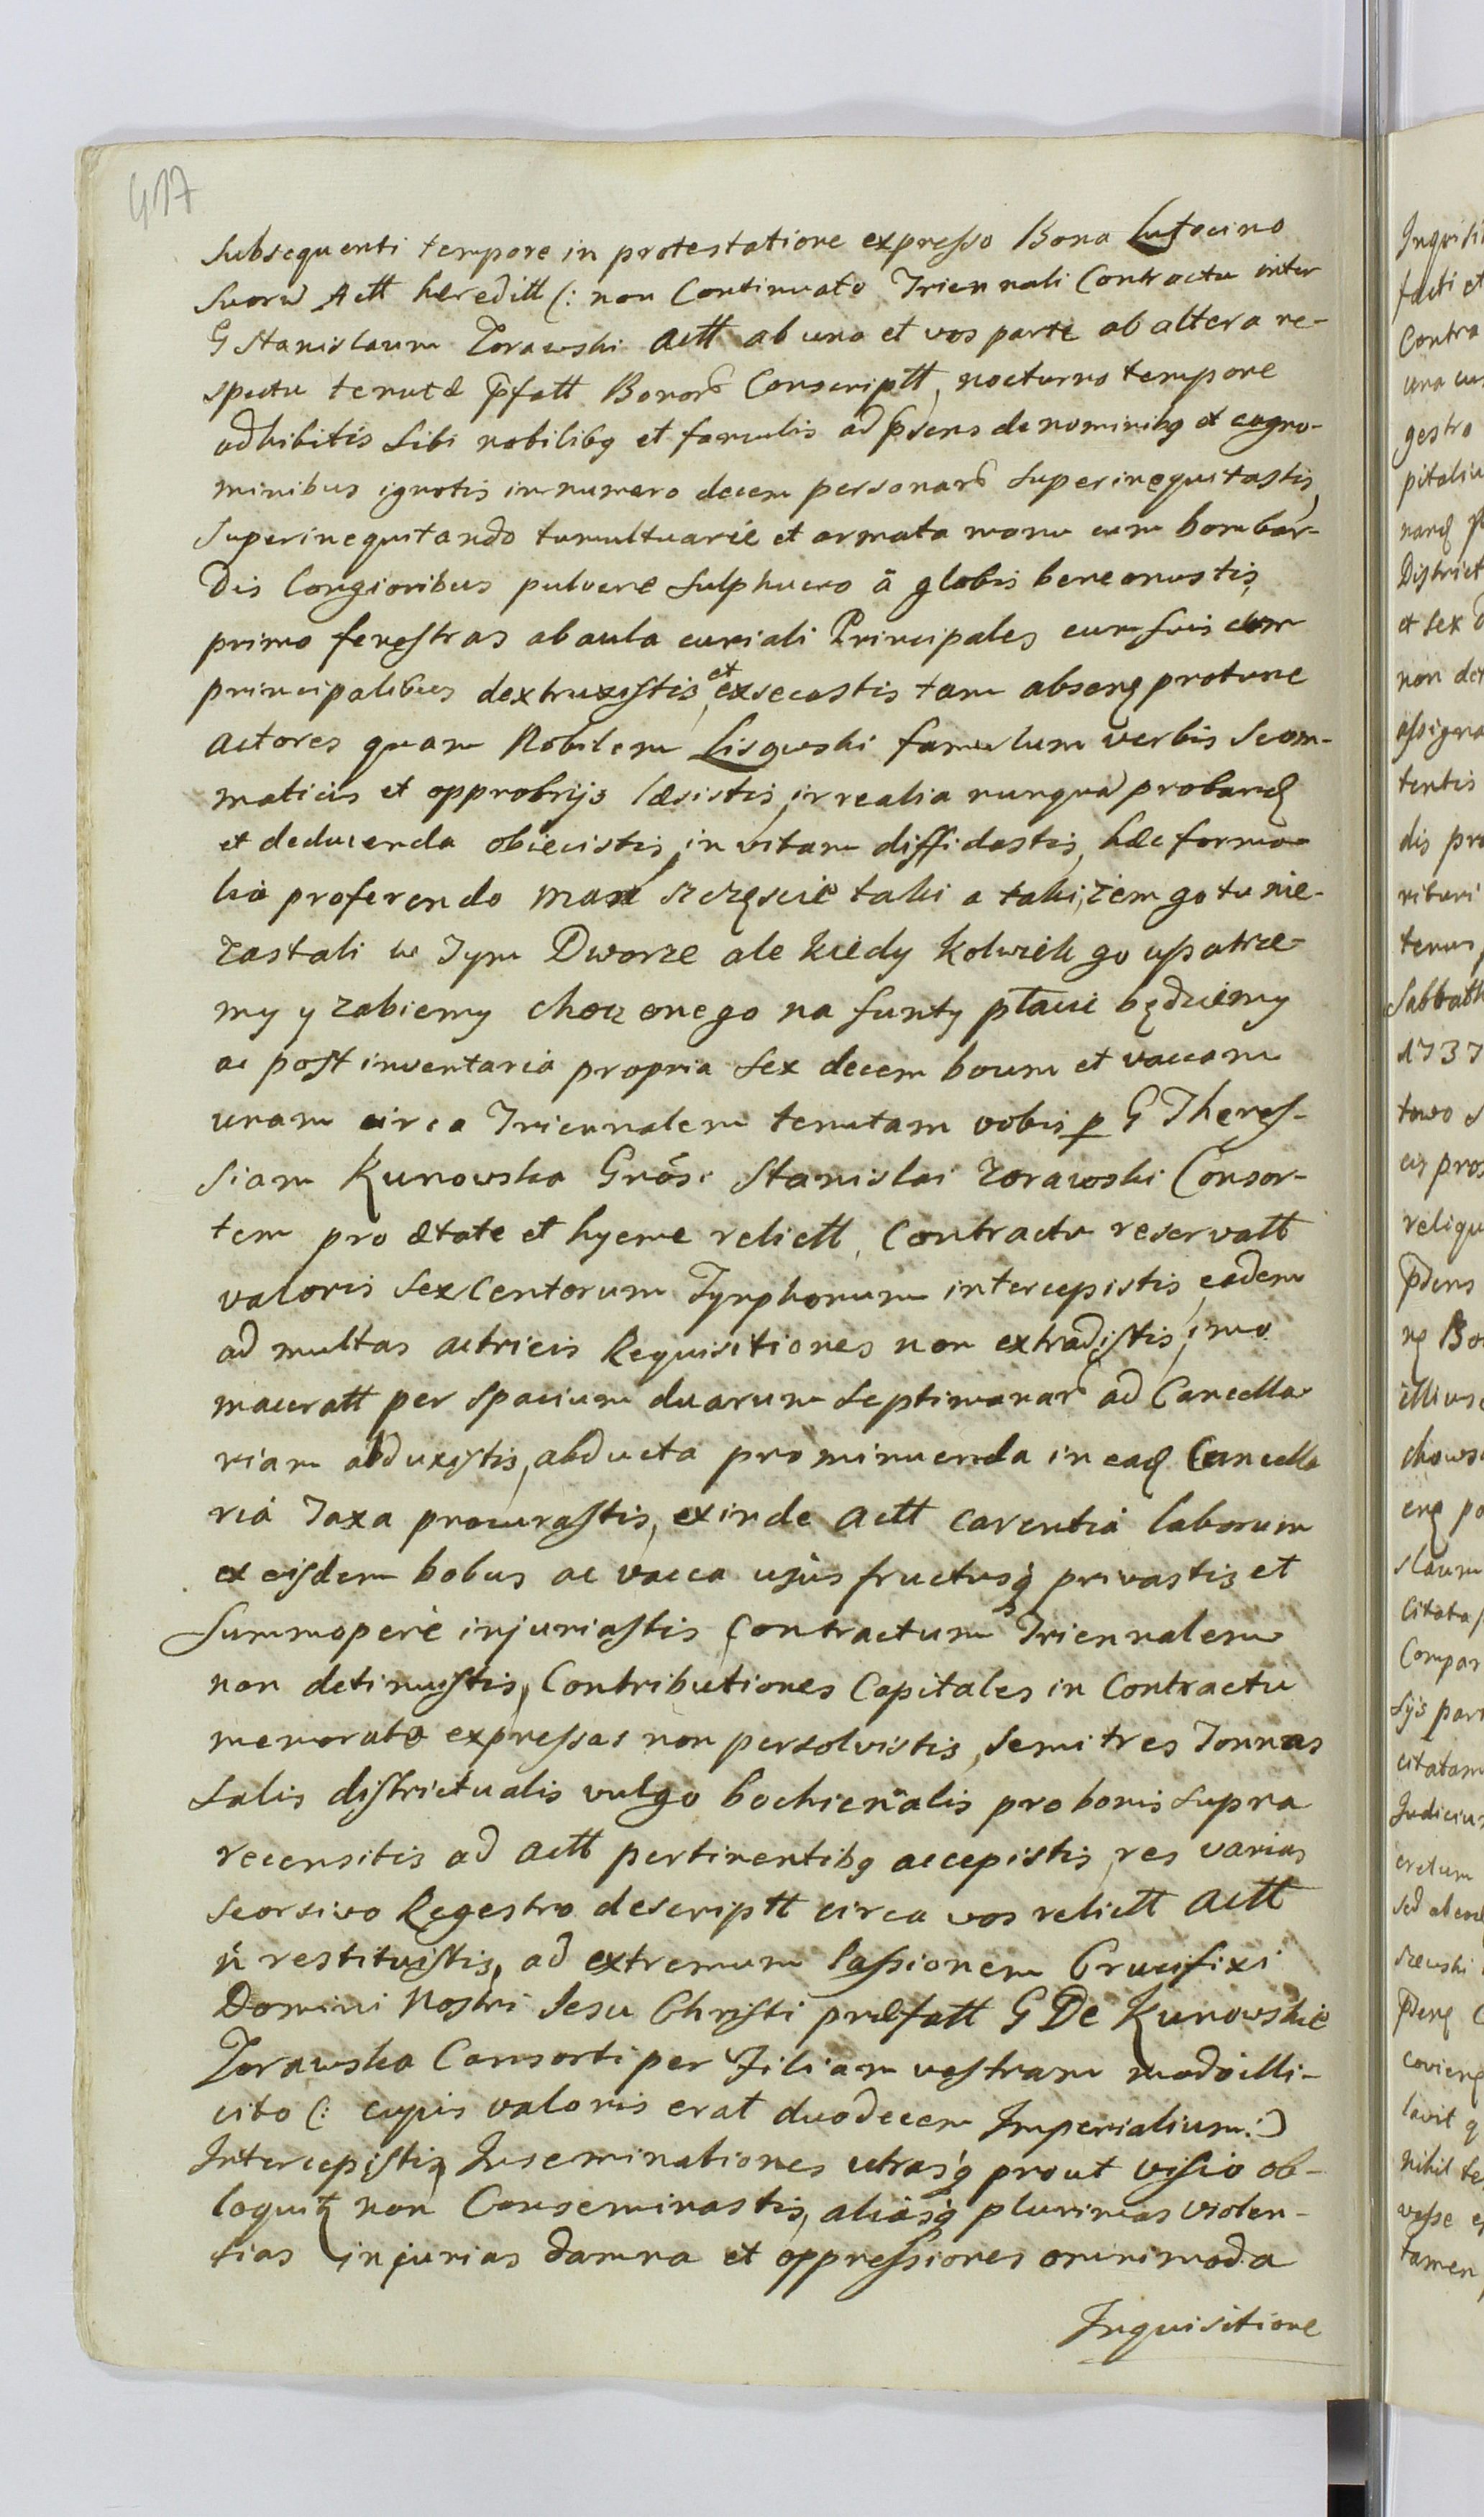 417
Subsequenti tempore in protestatione expresso Bona Lutocino
Suorũ Actt hereditt (: non Continuato Triennali Contractu inter
G Stanislaum Zorawski Actt ab una et vos parte ab altera re-
spectu tenutæ p̃fatt Bonorũ Conscriptt, nocturno tempore
adhibitis Sibi nobilibꝫ et famulis ad p̃sens de nominibꝫ et cogno-
minibus ignotis in numero decem personarũ Superinequitastis,
Superinequitando tumultuarié et armata manu cum bombar-
dis longioribus pulvere Sulphureo ā globis bene onustis,
primo fenestras ab aula curiali Principales cum suis
principalibus dextruxistis, et exsecastis tam absenꝫ protunc
Actores quam Nobilem Lisowski famulum verbis Scom-
maticis et opprobrijs læsistis, irrealia nunquã probanꝫ
et deducenda obiecistis, in vitam diffidastis, hæc forma-
lia proferendo Masz szczęscie taki a taki, zem go tu nie-
zastali w Tym Dworze ale kiedy kolwiek go upatrze-
my y zabiemy chocz onego na funty płacic będziemy
ac post inventaria propria Sex decem boum et vaccam
unam circa Triennalem tenutam vobis p G Theres-
siam Kunowska Grôsi Stanislai Zorawski Consor-
tem pro ætate et hyeme relictt, Contractu reservatt
valoris Sexcentorum Tynphonum intercepistis, eadem
ad multas actricis Requisitiones non extradistis, imo
maceratt per Spacium duarum Septimanarũ ad Cancella-
riam abduxistis, abducta pro minuenda in eaꝫ Cancella
ria Taxa procurastis, exinde Actt carentiá laborum
ex eisdem bobus ac vacca usus fructusꝗ privastis et
Summopere injuriastis Contractum Triennalem
non detinuistis, Contributiones Capitales in Contractu
memorato expressas non persolvistis, Semi tres Tonnas
Salis districtualis vulgo bochiensalis pro bonis Supra
recensitis ad Actt pertinentibꝫ accepistis, res varias
Seorsivo Regestro descriptt circa vos relictt Actt
ń restituistis, ad extremum Passionem Crucifixi
Domini Nostri Jesu Christi præfatt G De Kunowskie
Zorawska Consorti per Filiam vestram modo illi-
cito (: cujus valoris erat duodecem Imperialium :)
Intercepistis, Inseminationes utrasꝗ prout visio ob-
loquitꝫ non Conseminastis, aliasꝗ plurimas violen-
tias injurias damna et oppressiones omnimoda
Inquisitione